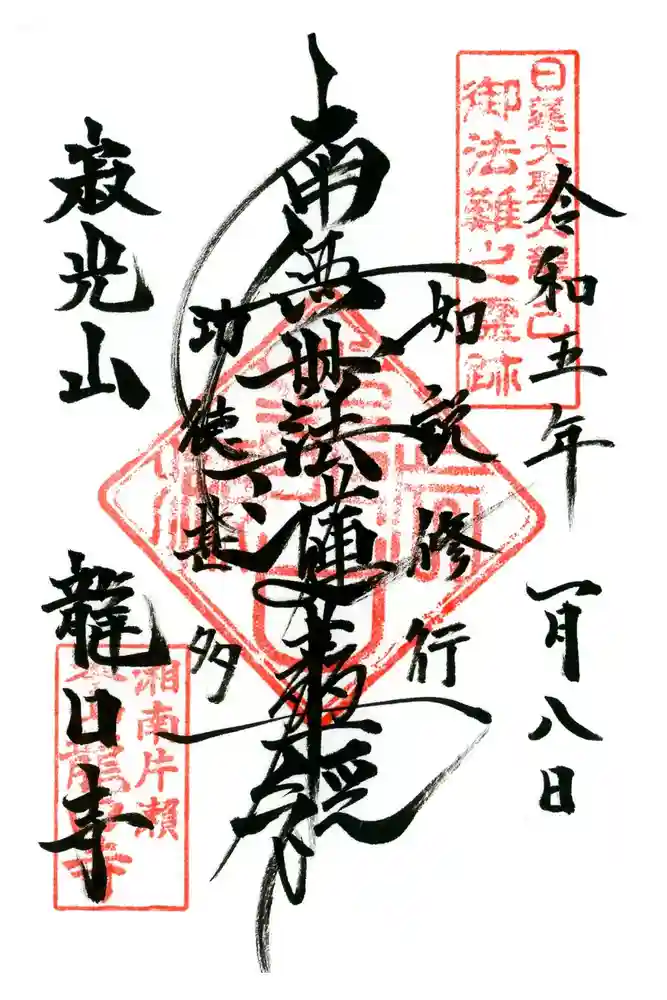 日蓮大聖人龍ノ口
御法難之霊跡
令和五年 一月八日
如説修行
南無妙法蓮華経
功徳甚多
寂光山 龍口寺
湘南片瀬
龍口寺